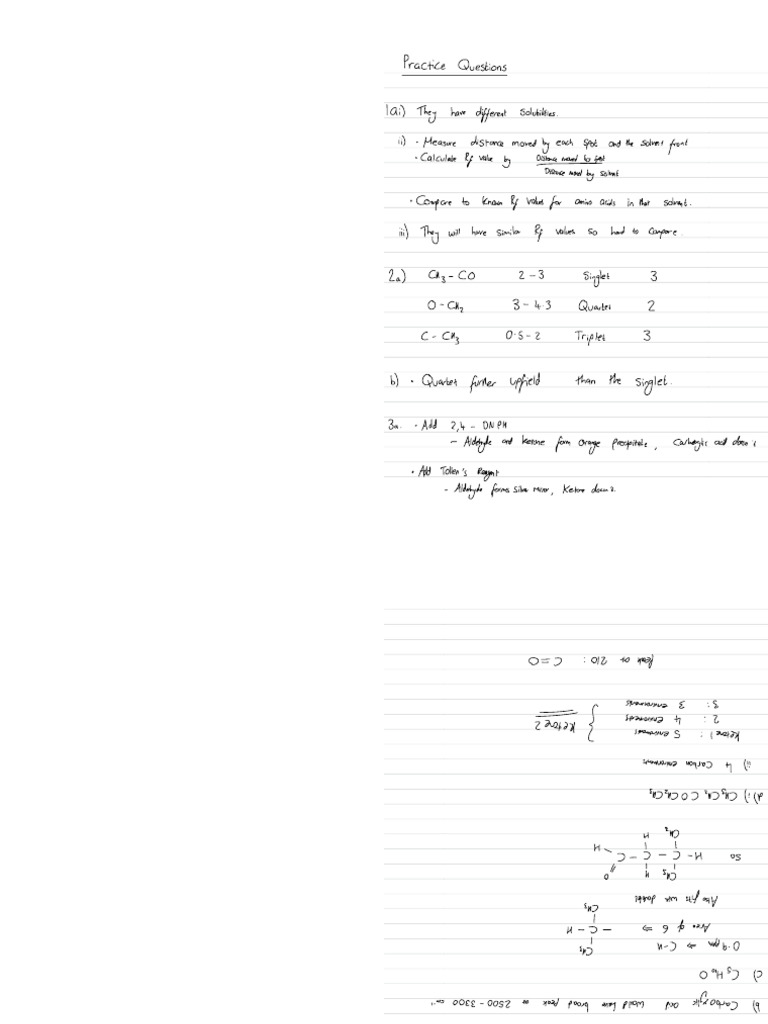 Practice Questions
1ai) They have different solubilities.
ii) • Measure distance moved by each spot and the solvent front
• Calculate Rf value by Distance moved by spot
Distance moved by solvent
• Compare to known Rf values for amino acids in that solvent.
iii) They will have similar Rf values so hard to compare.
2a) CH3 – CO 2 – 3 Singlet 3
O – CH2 3 – 4.3 Quartet 2
C – CH3 0.5 – 2 Triplet 3
b) • Quartet further upfield than the singlet.
3a. • Add 2,4 – DNPH
– Aldehyde and ketone form orange precipitate, Carboxylic acid doesn't
• Add Tollen's Reagent
– Aldehyde forms silver mirror, Ketone doesn't.
b) Carboxylic acid would have broad peak at 2500 – 3300 cm⁻¹
c) C5H10O
0.9 ppm ⇒ C–H
Area of 6 ⇒ – C – H
CH3
CH3
Also fits with doublet
So H – C – C – C
CH3 H O
CH3 H H
d) i) CH3CH2COCH2CH3
ii) 4 Carbon environments
Ketone 1: 5 environments
2: 4 environments } Ketone 2
3: 3 environments
Peak at 210: C=O